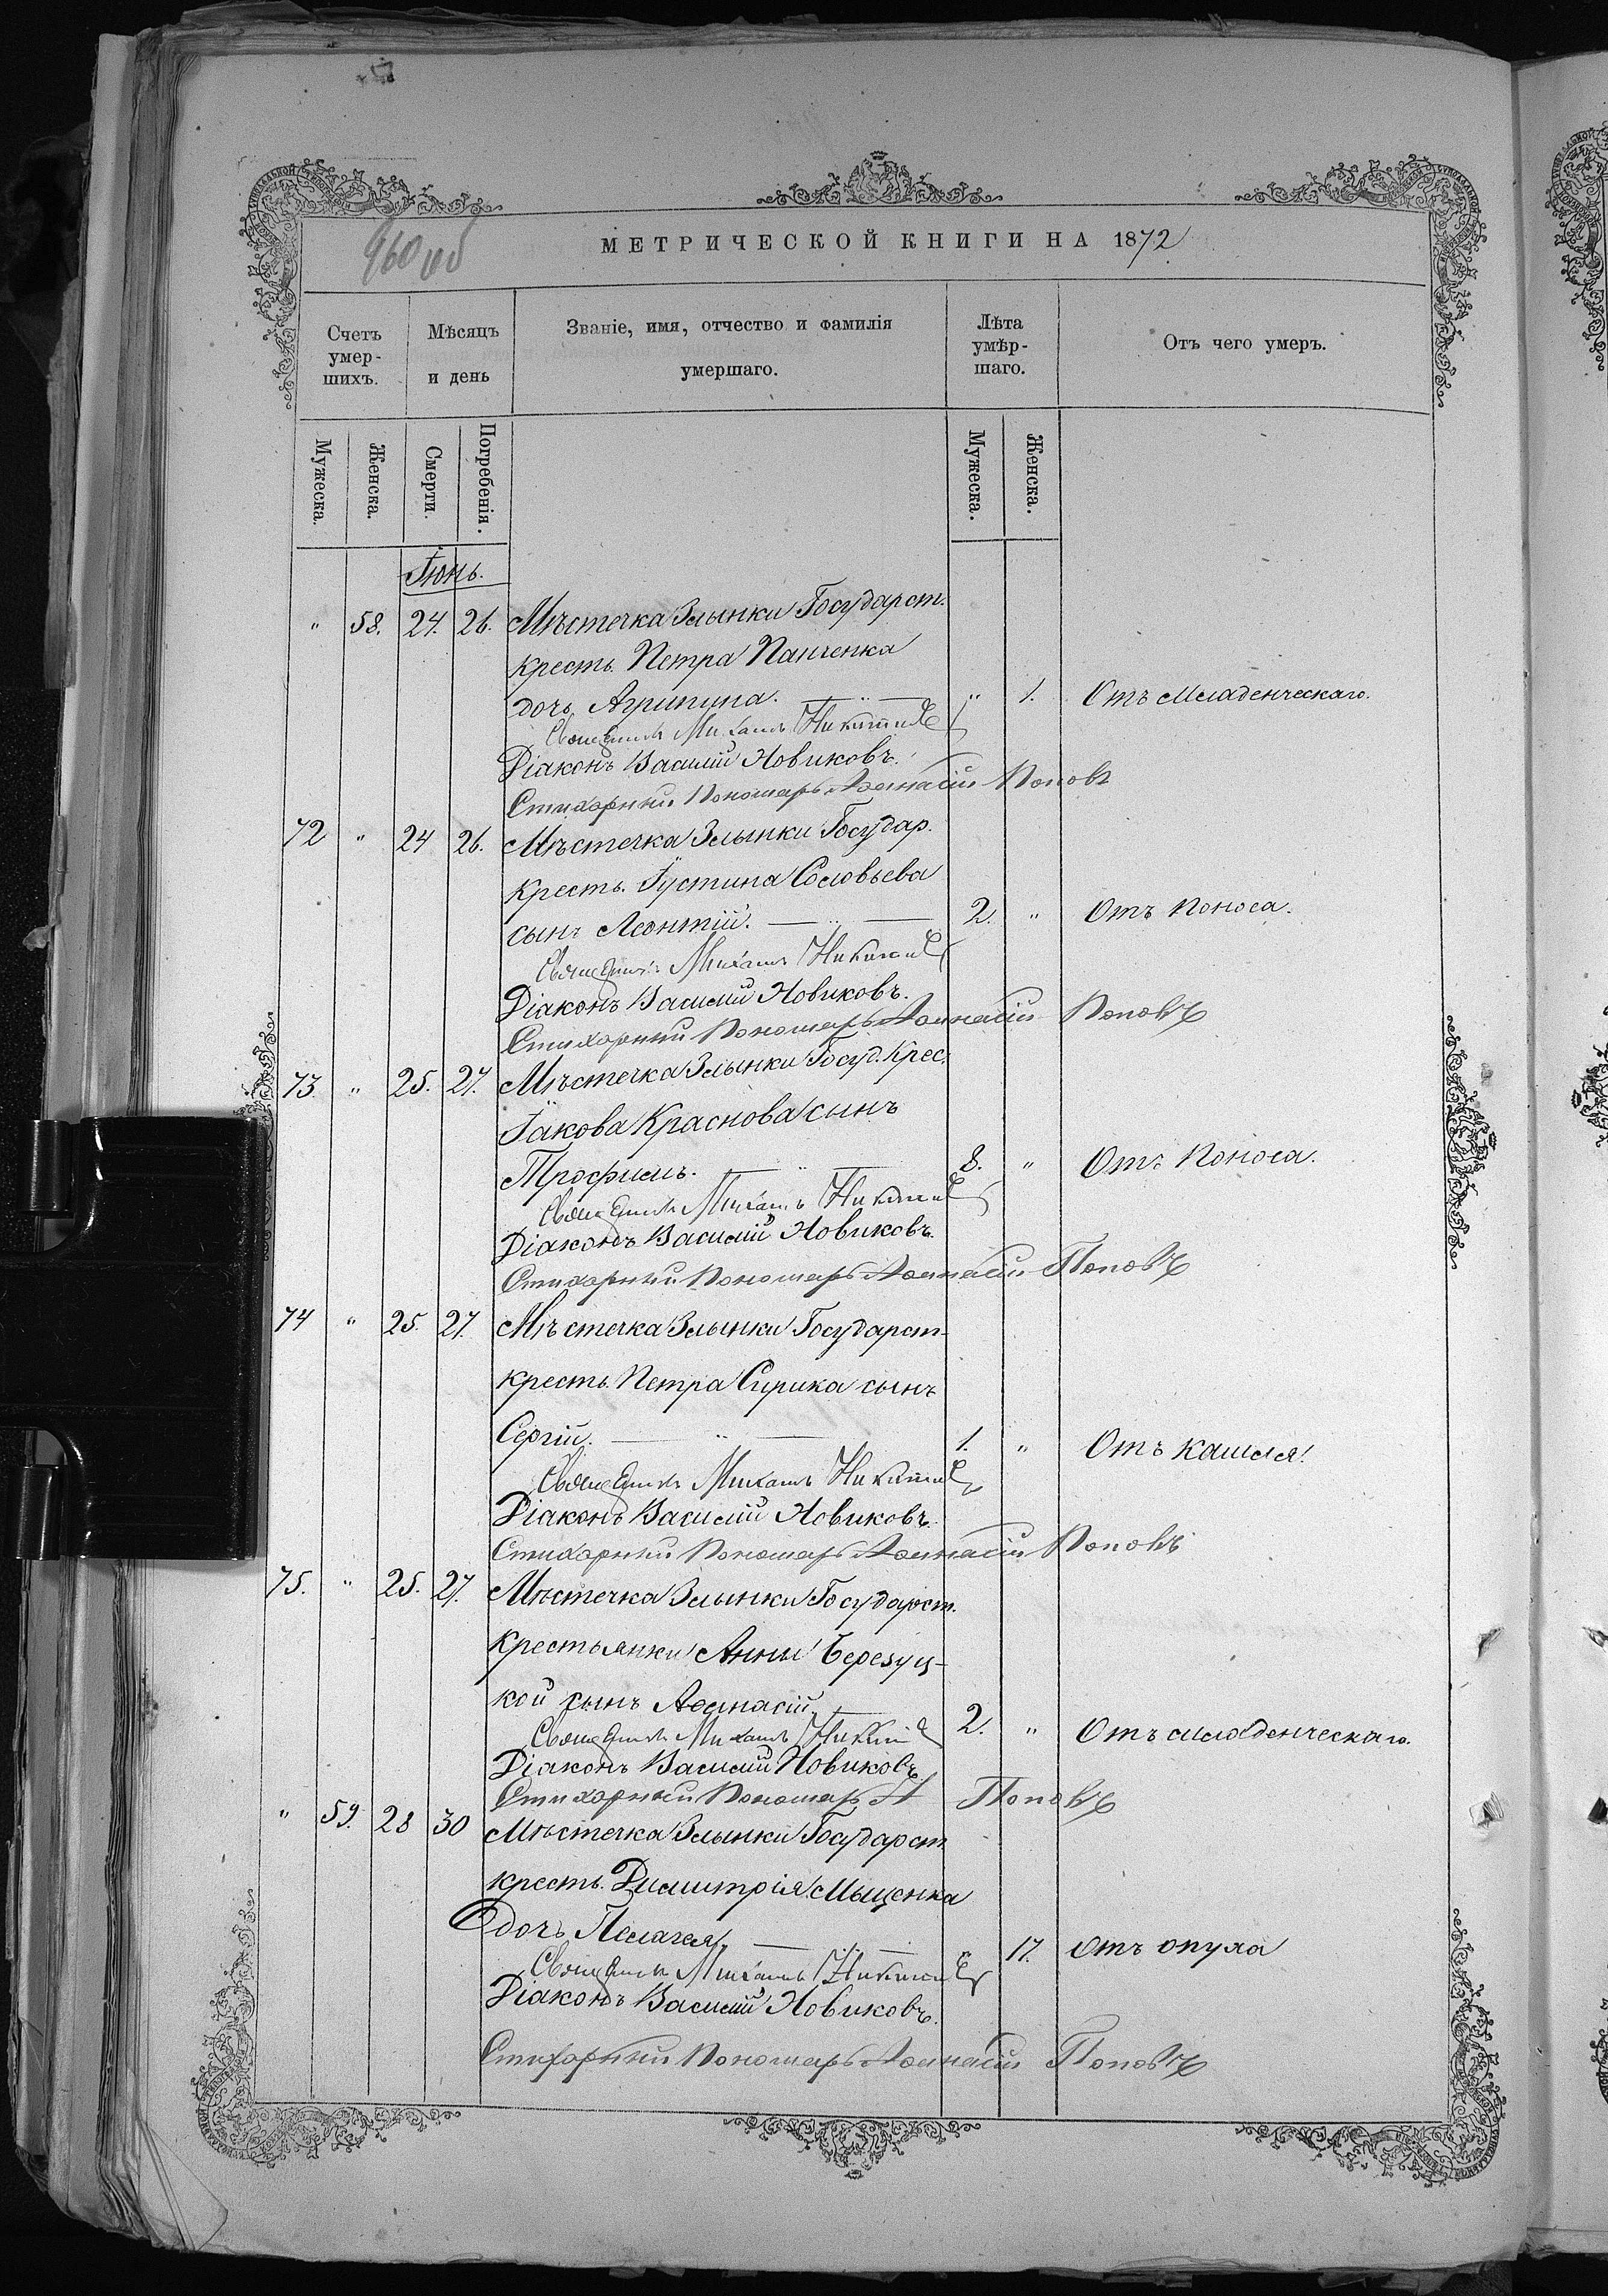 960 об
МЕТРИЧЕСКОЙ КНИГИ НА 1872
Счетъ умер- шихъ.
Мѣсяцъ и день
Званіе, имя, отчество и фамилія умершаго.
Лѣта умѣр- шаго.
Отъ чего умеръ.
Мужеска. Женска. Смерти. Погребенія. Мужеска. Женска.
Іюнь.
" 58. 24. 26. Мѣстечка Злынки Государст.
кресть. Петра Панченка
дочь Агрипина. " 1. Отъ младенческаго.
Священникъ Михаилъ Никитинъ
Діаконъ Василій Новиковъ.
Стихарный Пономарь Аѳанасій Поповъ
72 " 24 26. Мѣстечка Злынки Государ.
кресть. Іустина Соловьева
сынъ Леонтій. 2. " Отъ поноса.
Священникъ Михаилъ Никитинъ
Діаконъ Василій Новиковъ.
Стихарный Пономарь Аѳанасій Поповъ
73. " 25. 27. Мѣстечка Злынки Госуд. крес.
Іакова Краснова сынъ
Трофимъ. 8. " Отъ поноса.
Священникъ Михаилъ Никитинъ
Діаконъ Василій Новиковъ.
Стихарный Пономарь Аѳанасій Поповъ
74 " 25. 27. Мѣстечка Злынки Государст-
кресть. Петра Сирика сынъ
Сергій. 1. " Отъ кашля.
Священникъ Михаилъ Никитинъ
Діаконъ Василій Новиковъ.
Стихарный Пономарь Аѳанасій Поповъ
75. " 25. 27. Мѣстечка Злынки Государст.
крестьянки Анны Березуц-
кой сынъ Аѳанасій. 2. " Отъ младенческаго.
Священникъ Михаилъ Никитинъ
Діаконъ Василій Новиковъ.
Стихарный Пономарь А Поповъ
" 59. 28 30 Мѣстечка Злынки Государст
кресть. Димитрія Мыщенка
дочь Пелагея. " 17. Отъ опуха
Священникъ Михаилъ Никитинъ
Діаконъ Василій Новиковъ.
Стихарный Пономарь Аѳанасій Поповъ